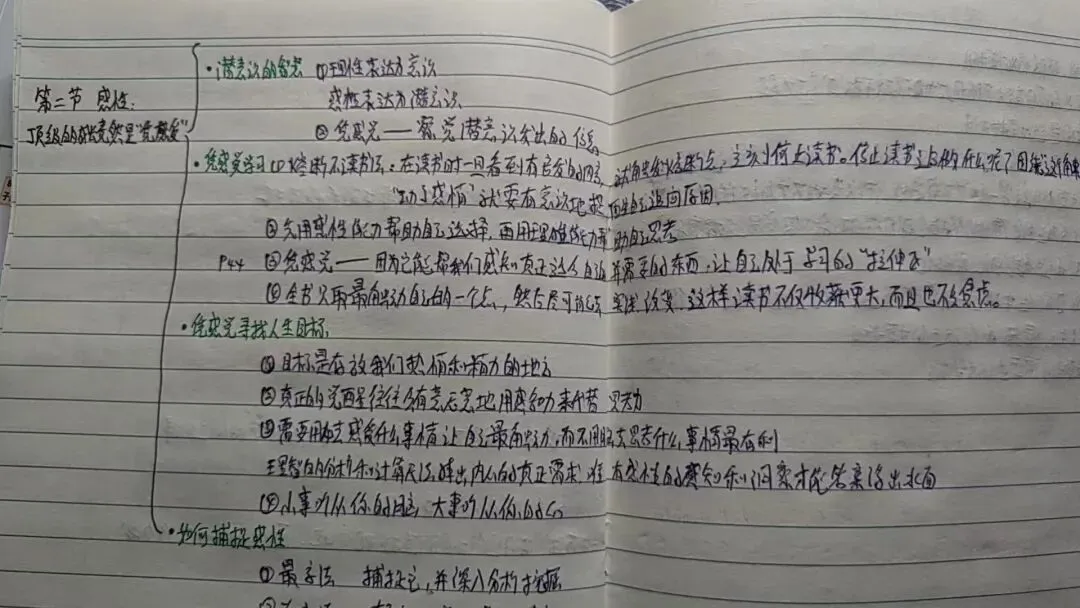 第二节 感性:
顶级的成长竟然是"凭感觉"
·潜意识的智慧 ①理性表达为意识
感性表达为潜意识
②凭感觉——察觉潜意识发出的信息
·凭感觉学习 ① 读书法:在读书时一旦看到有启发的内容,
"动了感情"就要有意识地提 自己追问原因.
②先用感性能力帮助自己选择,再用理性能力帮助自己思考
P44 ③凭感觉——因为它能帮我们感知真正适合自己并需要的东西,让自己处于学习的"拉伸区"
④全书只取最触动自己的一个点,然后尽可能去实践改变,这样读书不仅收获更大,而且也不会焦虑.
·凭感觉寻找人生目标
①目标是存放我们热情和精力的地方
②真正的觉醒者往往会有意无意地用感知力来代替思考力
③需要用心去感受什么事情让自己最触动,而不用脑去思考什么事情最有利
理智的分析和计算无法解出内心的真正需求,唯有感性的感知和洞察才能答案浮出水面
④小事听从你的脑,大事听从你的心
·如何捕捉感性
①最字法 捕捉它,并深入分析挖掘